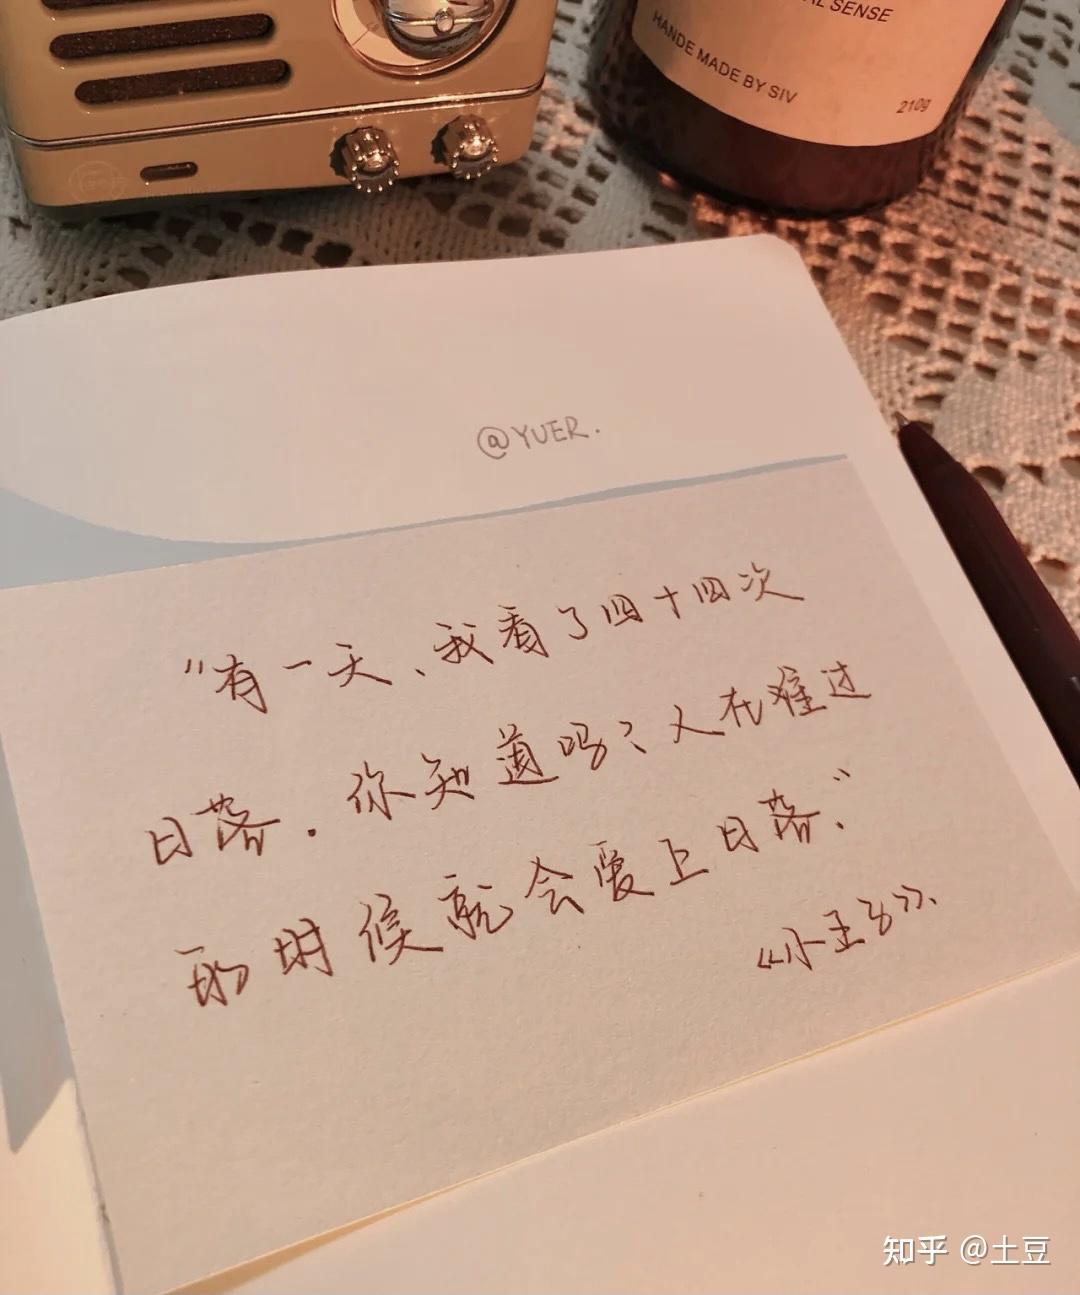 AL SENSE
HANDE MADE BY SIV
210g
@YUER.
"有一天、我看了四十四次
日落.你知道吗?人在难过
那时候就会爱上日落."
《小王子》.
知乎 @土豆